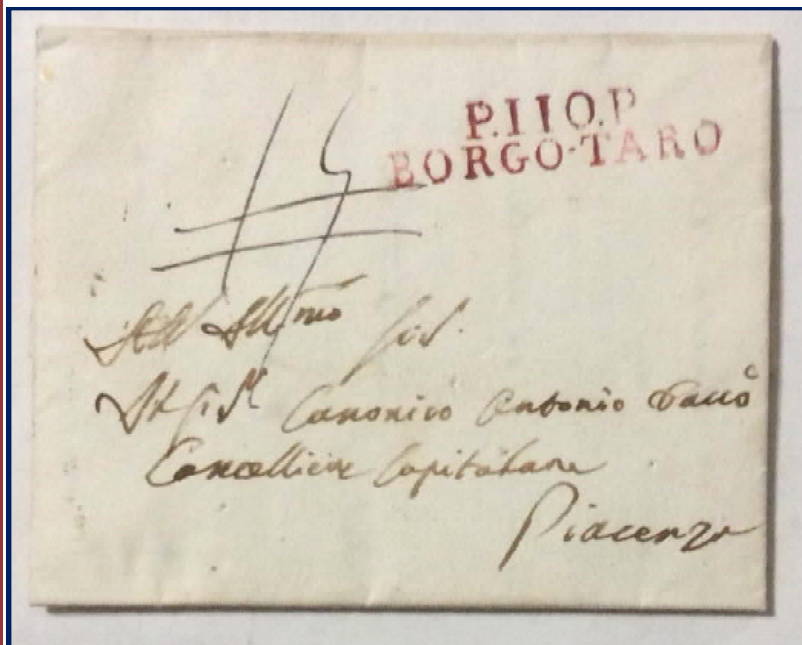 P.110.P.
BORGO-TARO
All' Ill.mo Sig.
Il Sig.r Canonico Antonio
Cancelliere Capitolare
Piacenza